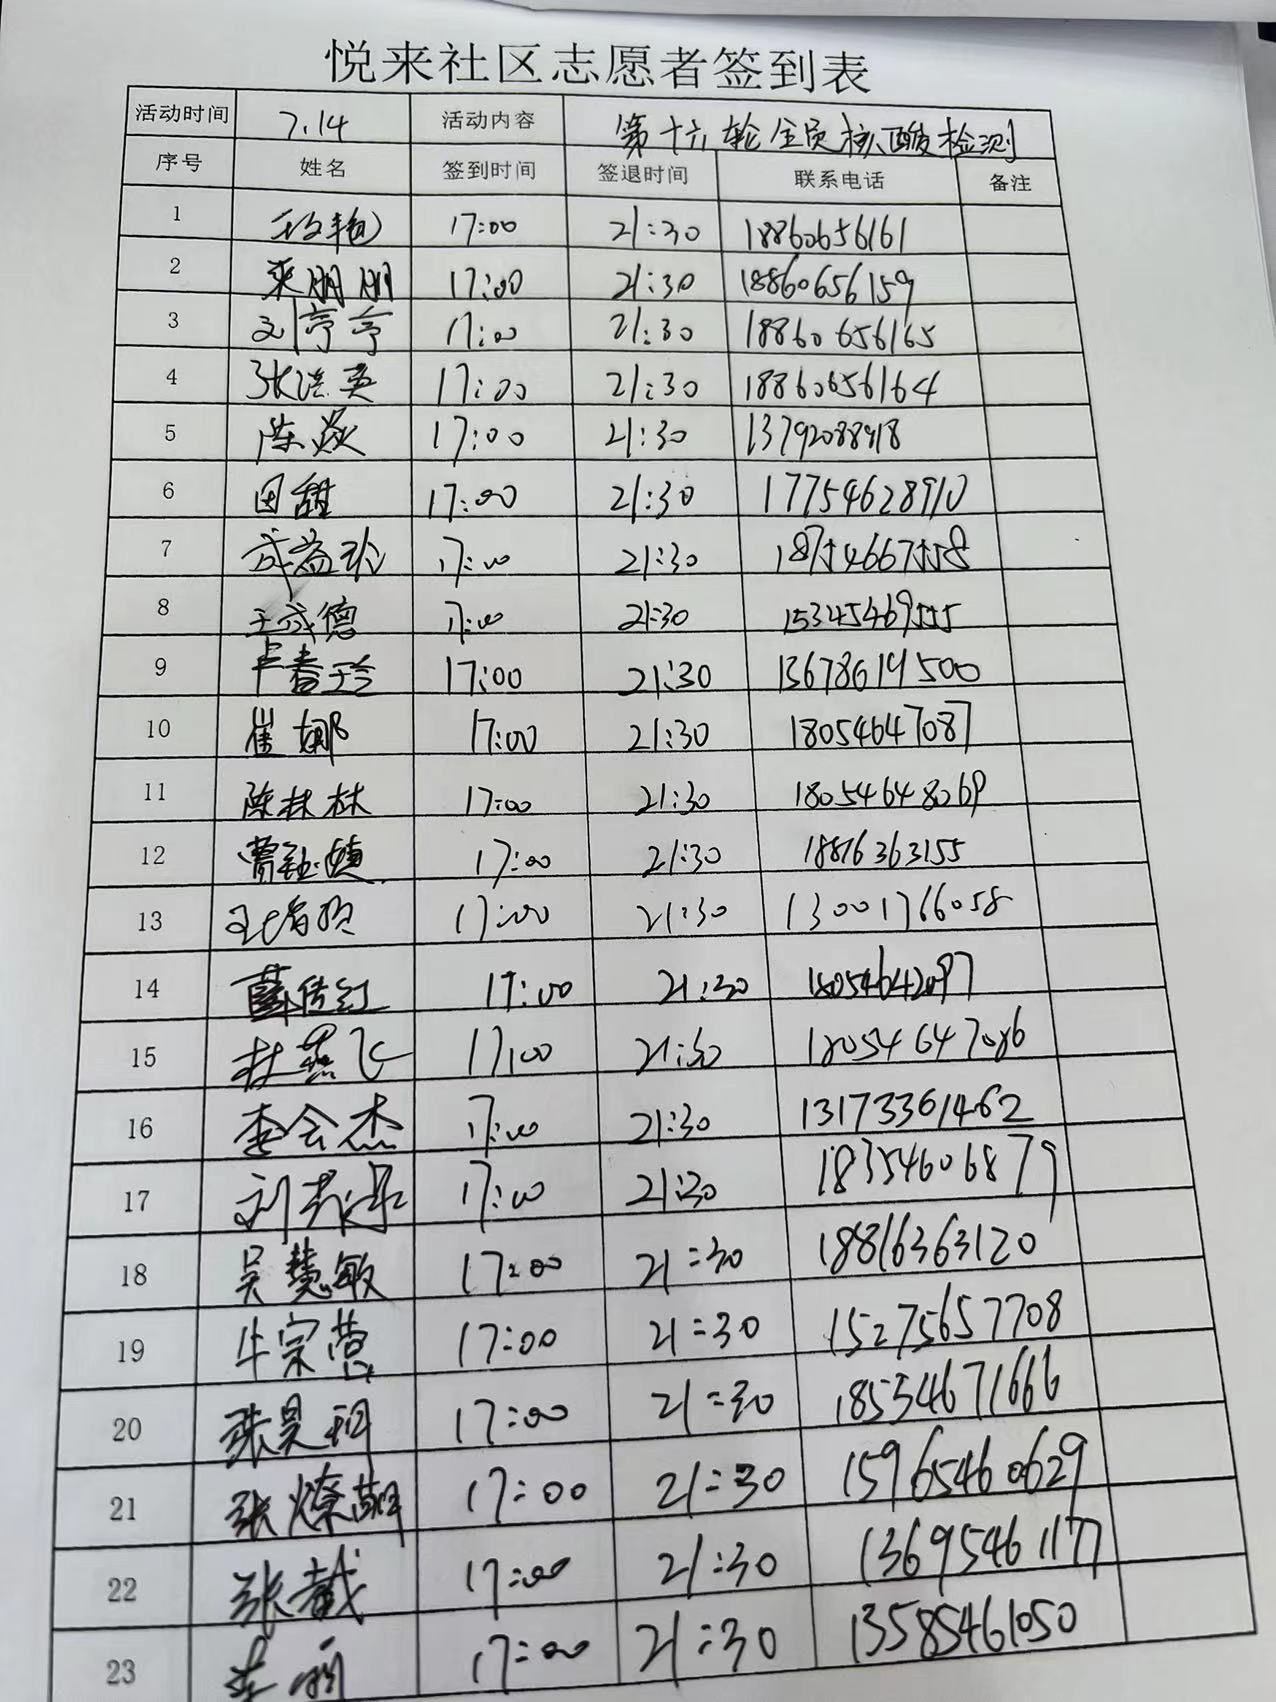 悦来社区志愿者签到表
活动时间 7.14 活动内容 第十六轮全员核酸检测
序号 姓名 签到时间 签退时间 联系电话 备注
1 17:00 21:30 18860656161
2 朋朋 17:00 21:30 18860656159
3 刘亭亭 17:00 21:30 18860656165
4 张洪英 17:00 21:30 18860656164
5 陈焱 17:00 21:30
6 田甜 17:00 21:30 17754628910
7 成益珍 17:00 21:30 18754667558
8 王成德 17:00 21:30 15345469555
9 卢春玲 17:00 21:30 13678619500
10 崔娜 17:00 21:30 18054647087
11 陈林林 17:00 21:30 18054648069
12 曹钰婧 17:00 21:30 18816363155
13 17:00 21:30 13001766058
14 17:00 21:30 18054642097
15 杜燕飞 17:00 21:30 18054647086
16 李会杰 17:00 21:30 13173361462
17 刘 17:00 21:30 18354606879
18 吴慧敏 17:00 21:30 18816363120
19 牛宗营 17:00 21:30 15275657708
20 张昊珂 17:00 21:30 18554671666
21 张燎 17:00 21:30 15965460629
22 张 17:00 21:30 13695461177
23 李 17:00 21:30 13585461050